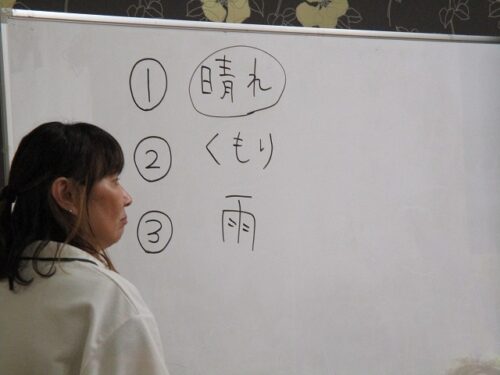 ① 晴れ
② くもり
③ 雨